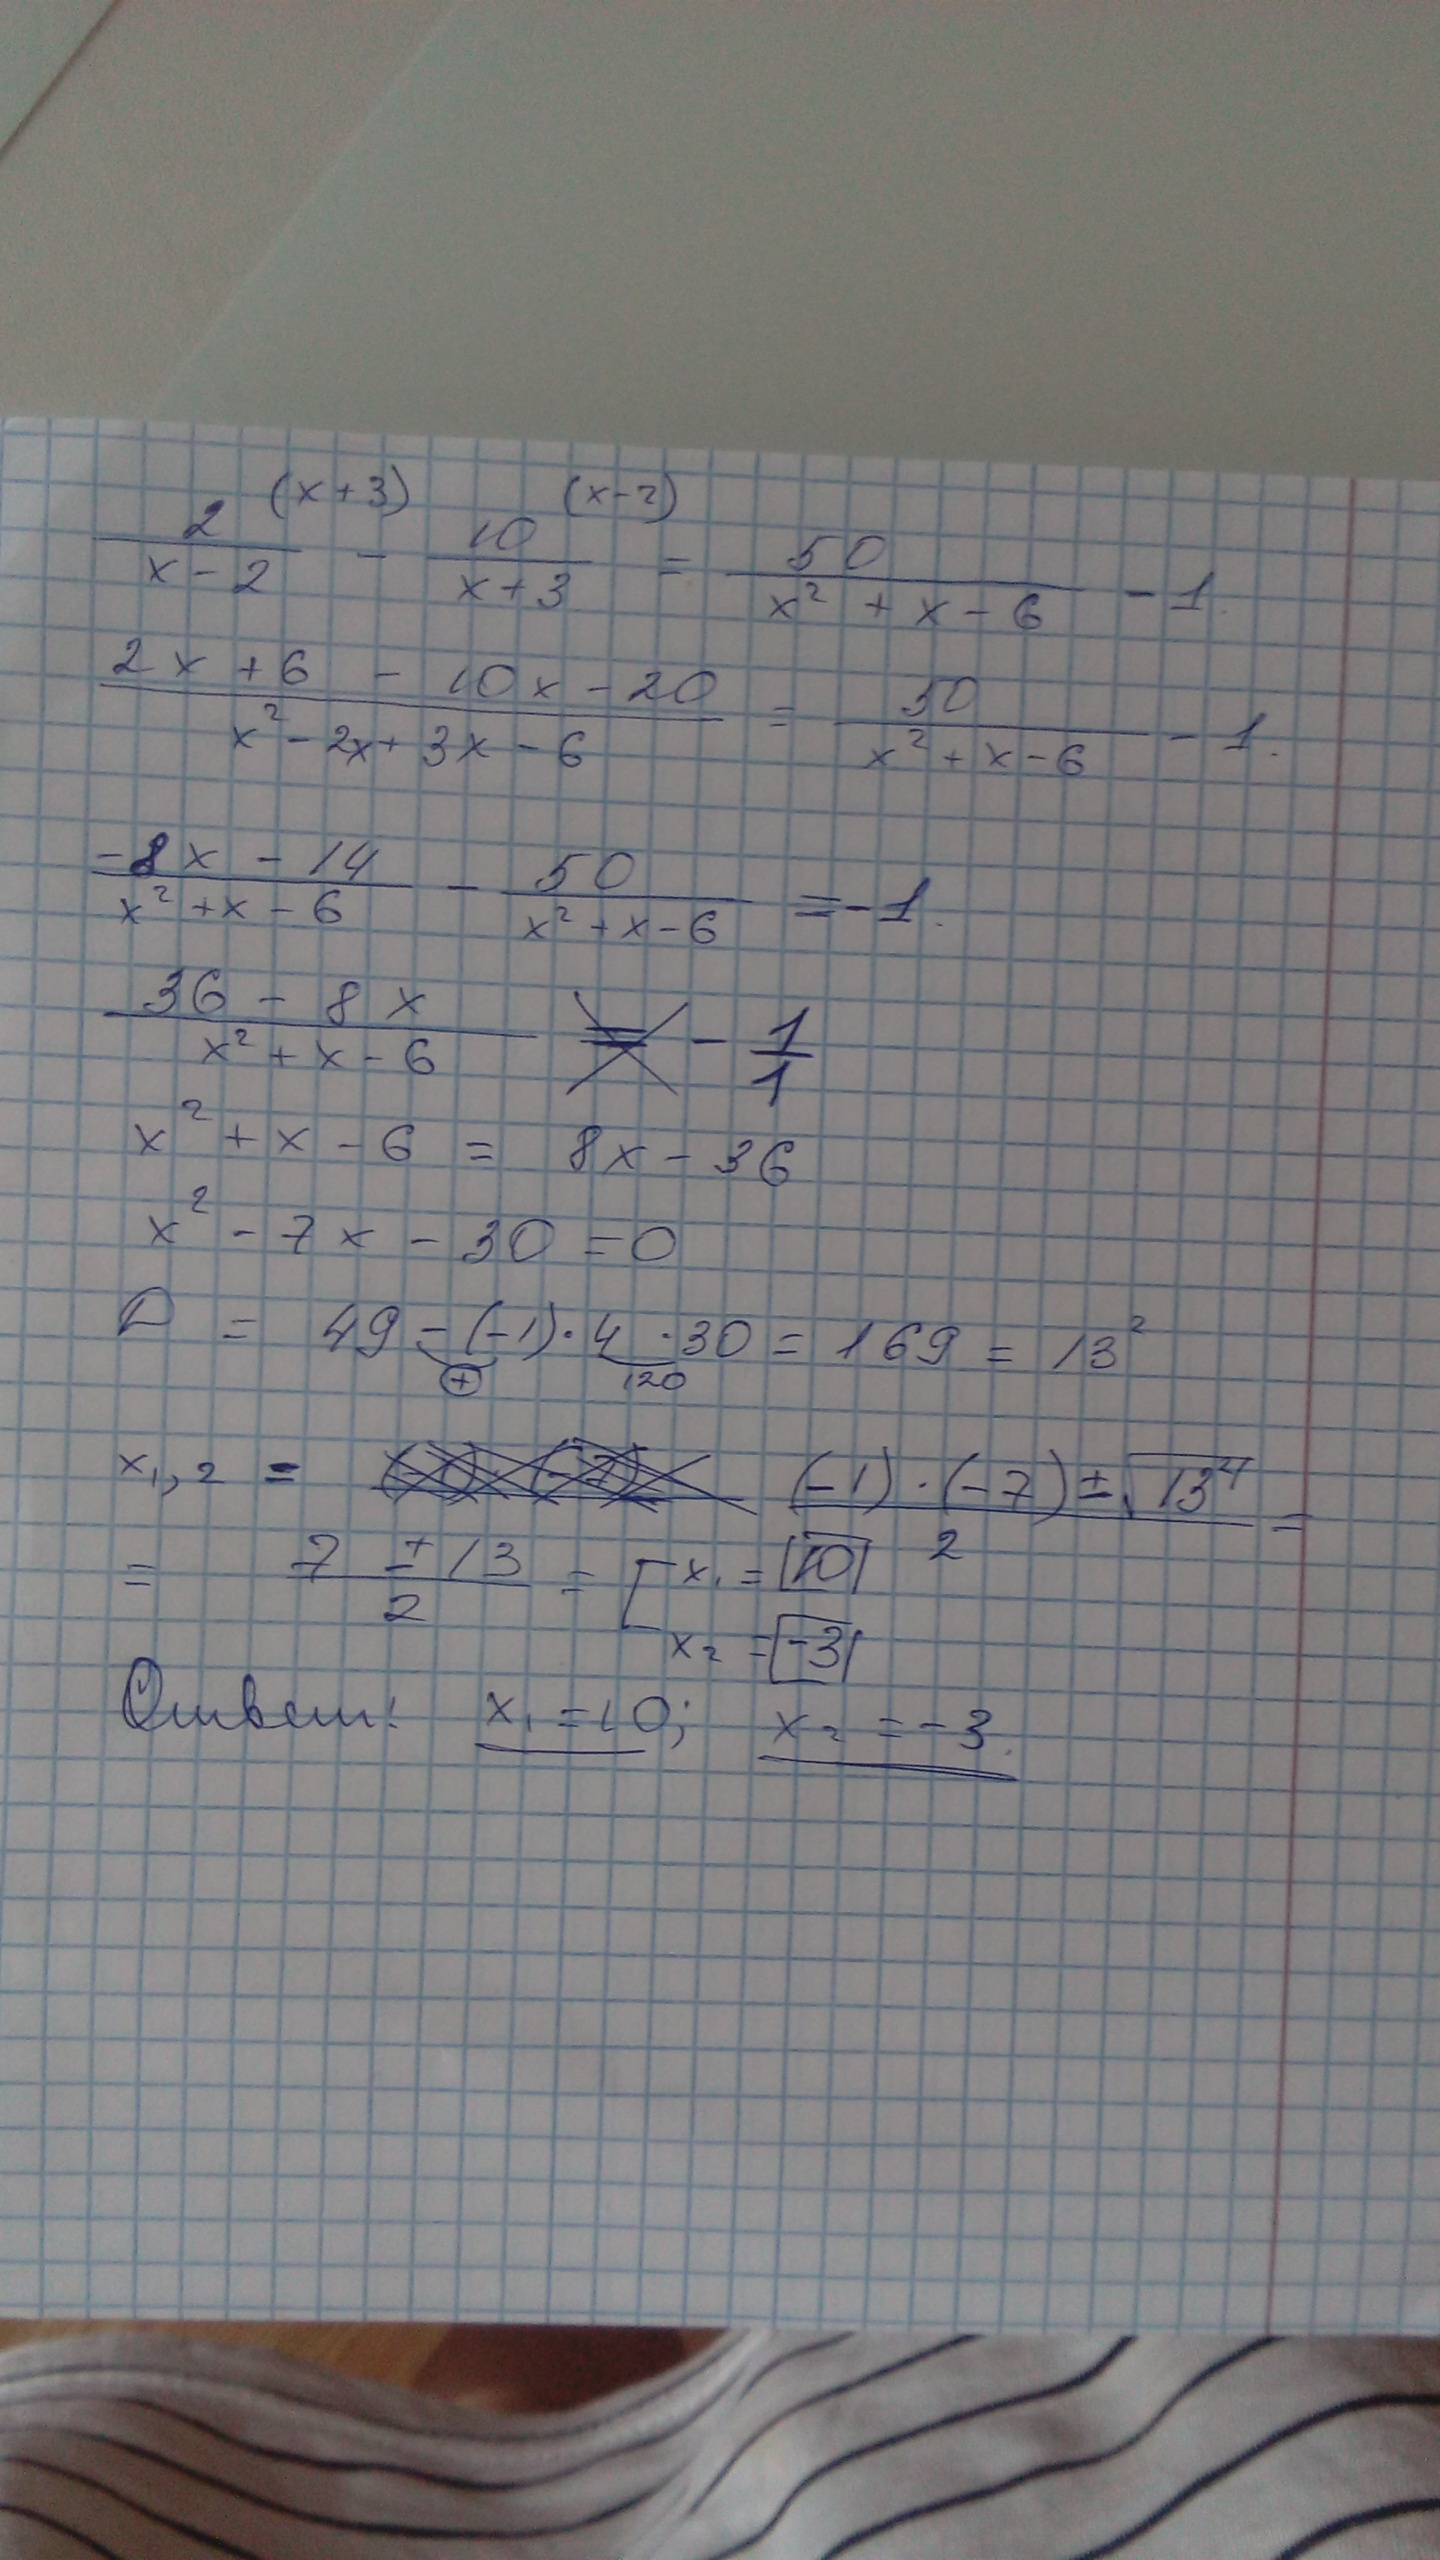 2/(x-2) (x+3) - 10/(x+3) (x-2) = 50/(x² + x - 6) - 1.
(2x + 6 - 10x - 20)/(x² - 2x + 3x - 6) = 50/(x² + x - 6) - 1.
(-8x - 14)/(x² + x - 6) - 50/(x² + x - 6) = -1.
(36 - 8x)/(x² + x - 6) = - 1/1
x² + x - 6 = 8x - 36
x² - 7x - 30 = 0
D = 49 - (-1) · 4 · 30 = 169 = 13²
+ 120
x₁,₂ = ((-1) · (-7) ± √13²)/2 =
= (7 ± 13)/2 = [ x₁ = 10
x₂ = -3
Ответ: x₁ = 10; x₂ = -3.